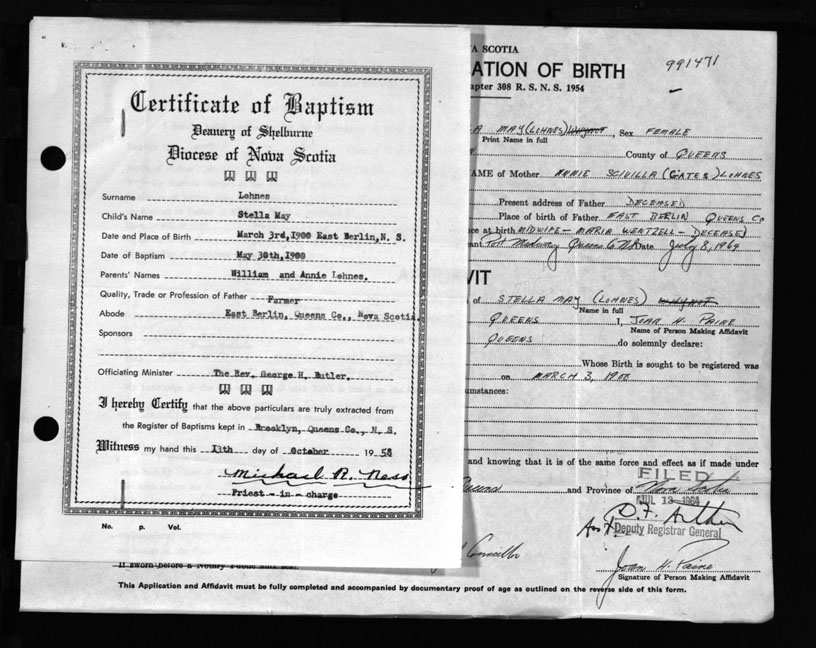 Certificate of Baptism
Deanery of Shelburne
Diocese of Nova Scotia
Surname Lohnes
Child's Name Stella May
Date and Place of Birth March 3rd,1900 East Berlin,N. S.
Date of Baptism May 30th,1900
Parents' Names William and Annie Lohnes.
Quality, Trade or Profession of Father Farmer
Abode East Berlin, Queens Co., Nova Scotia
Sponsors
Officiating Minister The Rev. George H. Butler.
I hereby Certify that the above particulars are truly extracted from
the Register of Baptisms kept in Brooklyn, Queens Co., N. S.
Witness my hand this 13th day of October 1958
Michael R. Ness
Priest - in - charge
No. p. Vol.
VA SCOTIA
ATION OF BIRTH
991471
apter 308 R. S. N. S. 1954
A MAY (LOHNES) , Sex FEMALE
Print Name in full
County of QUEENS
AME of Mother ANNIE SCIVILLA (GATES) LOHNES
Present address of Father DECEASED
Place of birth of Father EAST BERLIN QUEENS CO
ce at birth MIDWIFE - MARIA WENTZELL - DECEASED
ant Port Medway Queens Co NS Date July 8, 1964
VIT
of STELLA MAY (LOHNES)
Name in full
QUEENS I, JOAN H. PAINE
Name of Person Making Affidavit
QUEENS do solemnly declare:
Whose Birth is sought to be registered was
on MARCH 3, 1900
umstances:
and knowing that it is of the same force and effect as if made under
Queens and Province of Nova Scotia
FILED
JUL 13 1964
Deputy Registrar General
Councillor
If sworn before a Notary Public
Joan H. Paine
Signature of Person Making Affidavit
This Application and Affidavit must be fully completed and accompanied by documentary proof of age as outlined on the reverse side of this form.